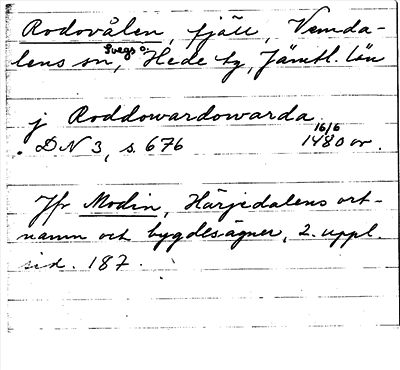 Rodovålen, fjäll, Vemda-
lens sn, Svegs o. Hede tg, Jämtl. län
j Roddowardowarda
. DN 3, s. 676 16/6 1480 or.
Jfr Modin, Härjedalens ort-
namn och bygdesägner, 2. uppl.
sid. 187.